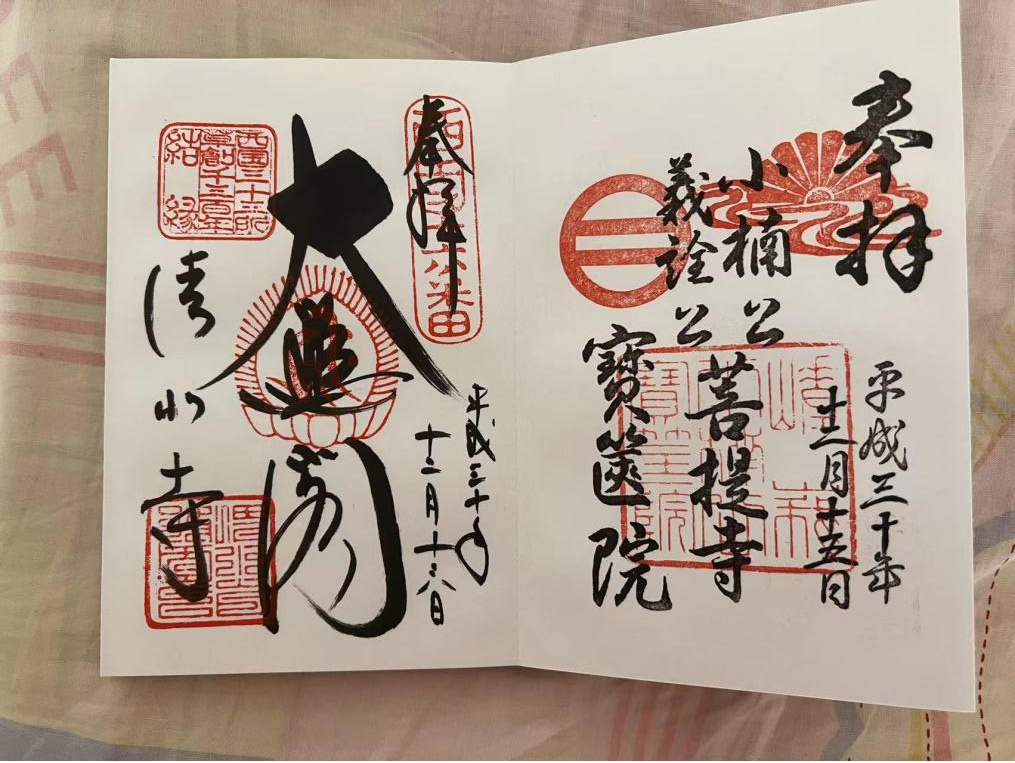 奉拝
平成三十年
十二月十五日
小楠公
義詮公
菩提寺
寶筐院
奉拝
西国第十六番
平成三十年
十二月
大悲閣
西国三十三所
草創千三百年
結縁
清水寺